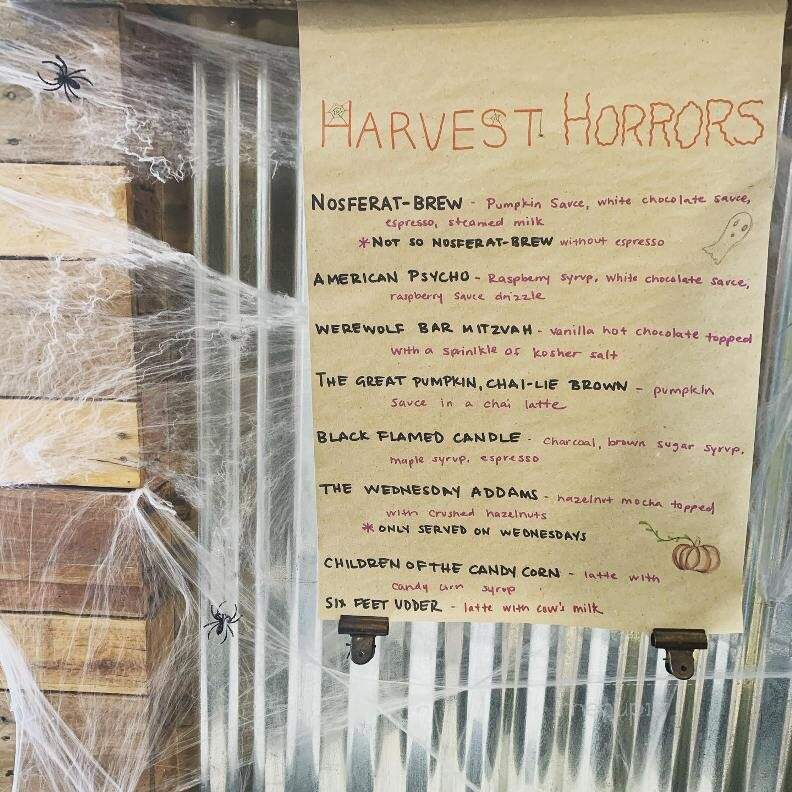 HARVEST HORRORS
NOSFERAT-BREW - Pumpkin Sauce, white chocolate sauce,
espresso, steamed milk
*NOT SO NOSFERAT-BREW without espresso
AMERICAN PSYCHO - Raspberry syrup, white chocolate sauce,
raspberry sauce drizzle
WEREWOLF BAR MITZVAH - vanilla hot chocolate topped
with a sprinkle of kosher salt
THE GREAT PUMPKIN, CHAI-LIE BROWN - pumpkin
sauce in a chai latte
BLACK FLAMED CANDLE - charcoal, brown sugar syrup,
maple syrup, espresso
THE WEDNESDAY ADDAMS - hazelnut mocha topped
with crushed hazelnuts
*ONLY SERVED ON WEDNESDAYS
CHILDREN OF THE CANDY CORN - latte with
candy corn syrup
SIX FEET UDDER - latte with cow's milk